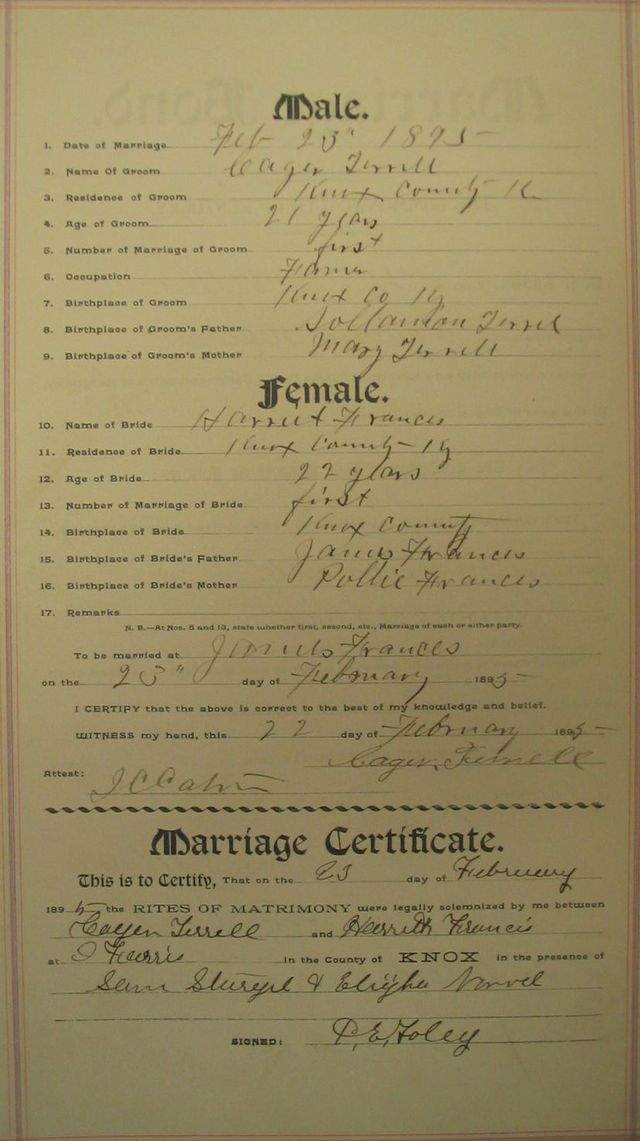 Male.
1. Date of Marriage Feb 23" 1895
2. Name Of Groom Cager Terrell
3. Residence of Groom Knox County K
4. Age of Groom 21 years
5. Number of Marriage of Groom first
6. Occupation Farmer
7. Birthplace of Groom Knox Co Ky
8. Birthplace of Groom's Father Sollamon Terrel
9. Birthplace of Groom's Mother Mary Terrell
Female.
10. Name of Bride Harriet Frances
11. Residence of Bride Knox County Ky
12. Age of Bride 22 years
13. Number of Marriage of Bride first
14. Birthplace of Bride Knox County
15. Birthplace of Bride's Father James Frances
16. Birthplace of Bride's Mother Pollie Frances
17. Remarks
N. B.—At Nos. 5 and 13, state whether first, second, etc., Marriage of each or either party.
To be married at James Frances
on the 23" day of February 1895
I CERTIFY that the above is correct to the best of my knowledge and belief.
WITNESS my hand, this 22 day of February 1895
Cager Terrell
Attest: J C
Marriage Certificate.
This is to Certify, That on the 23 day of February
1895 the RITES OF MATRIMONY were legally solemnized by me between
Cager Terrell and Francis
at in the County of KNOX in the presence of
Sam & Elijha
SIGNED: P. E. Foley